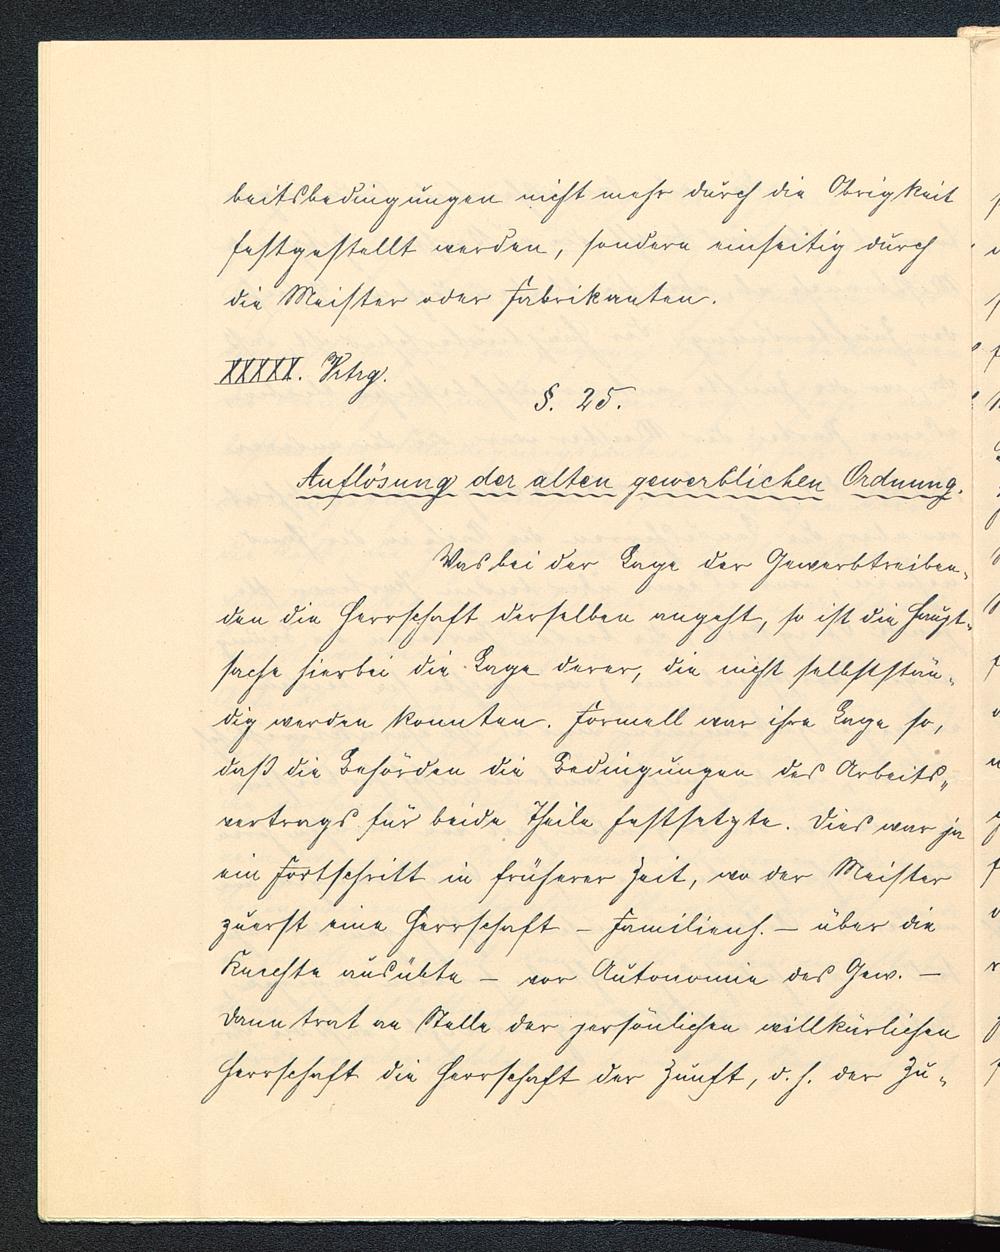 beitsbedingungen nicht mehr durch die Obrigkeit
festgestellt werden, sondern einseitig durch
die Meister oder Fabrikanten.
XXXXX. Vtrg.
§. 25.
Auflösung der alten gewerblichen Ordnung.
Was bei der Lage der Gewerbtreiben-
den die Herrschaft derselben angeht, so ist die Haupt-
sache hierbei die Lage derer, die nicht selbststän-
dig werden konnten. Formell war ihre Lage so,
daß die Behörden die Bedingungen des Arbeits-
vertrags für beide Theile festsetzte. Dies war ja
ein Fortschritt in früherer Zeit, wo der Meister
zuerst eine Herrschaft – Familienh. – über die
Knechte ausübte – vor Autonomie des Gew. –
dann trat an Stelle der persönlichen willkürlichen
Herrschaft die Herrschaft der Zunft, d. h. der Zu-